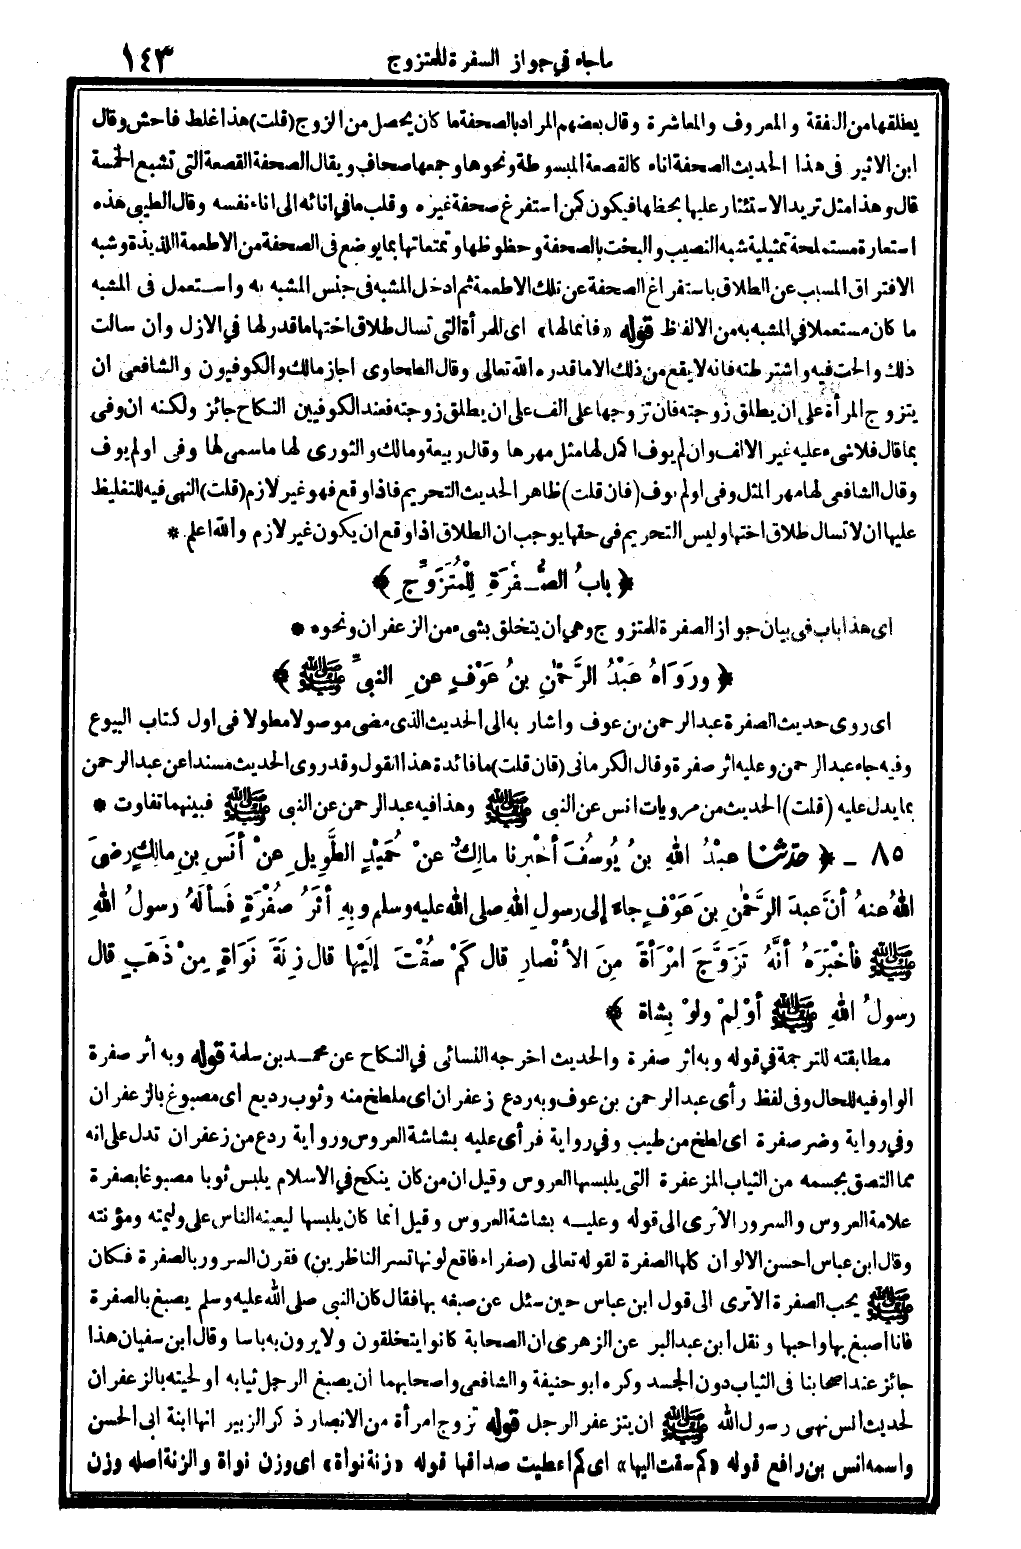 ماجاء في جواز السفرة للمتزوج ١٤٣
يطلقها من النفقة والمعروف والمعاشرة وقال بعضهم المراد بالصحفة ما كان يحصل من الزوج (قلت) هذا غلط فاحش وقال
ابن الاثير فى هذا الحديث الصحفة اناء كالقصعة المبسوطة ونحوها وجمعها صحاف ويقال الصحفة القصعة التى تشبع الخمسة
قال وهذا مثل تريد الاستئثار عليها بحظها فيكون كمن استفرغ صحفة غيره وقلب ما في انائه الى اناء نفسه وقال الطيبى هذه
استعارة مستملحة تمثيلية شبه النصيب والبخت بالصحفة وحظوظها وتمتعاتها بما يوضع فى الصحفة من الاطعمة اللذيذة وشبه
الافتراق المسبب عن الطلاق باستفراغ الصحفة عن تلك الاطعمة ثم ادخل المشبه فى جنس المشبه به واستعمل فى المشبه
ما كان مستعملا في المشبه به من الالفاظ قوله «فانمالها» اى للمرأة التى تسال طلاق اختها ما قدر لها في الازل وان سالت
ذلك والحت فيه واشترطته فانه لا يقع من ذلك الا ما قدره الله تعالى وقال الطحاوى اجاز مالك والكوفيون والشافعى ان
يتزوج المرأة على ان يطلق زوجته فان تزوجها على الف على ان يطلق زوجته فعند الكوفيين النكاح جائز ولكنه ان وفى
بما قال فلا شىء عليه غير الالف وان لم يوف اكمل لها مثل مهرها وقال ربيعة ومالك والثورى لها ما سمى لها وفى او لم يوف
وقال الشافعى لها مهر المثل وفى او لم يوف (فان قلت) ظاهر الحديث التحريم فاذا وقع فهو غير لازم (قلت) النهى فيه للتغليظ
عليها ان لا تسال طلاق اختها وليس التحريم فى حقها يوجب ان الطلاق اذا وقع ان يكون غير لازم والله اعلم *
﴿ بابُ الصُّفْرَةِ لِلْمُتَزَوِّجِ ﴾
اى هذا باب فى بيان جواز الصفرة للمتزوج وهى ان يتخلق بشىء من الزعفران ونحوه *
﴿ ورَوَاهُ عَبْدُ الرَّحْمٰنِ بنُ عَوْفٍ عنِ النبىِّ ﷺ ﴾
اى روى حديث الصفرة عبد الرحمن بن عوف واشار به الى الحديث الذى مضى موصولا مطولا فى اول كتاب البيوع
وفيه جاء عبد الرحمن وعليه اثر صفرة وقال الكرمانى (قان قلت) ما فائدة هذا القول وقد روى الحديث مسندا عن عبد الرحمن
بما يدل عليه (قلت) الحديث من مرويات انس عن النبى ﷺ وهذا فيه عبد الرحمن عن النبى ﷺ فبينهما تفاوت *
٨٥ - ﴿ حدّثنا عبْدُ اللهِ بنُ يُوسُفَ أخْبرنا مالِكٌ عنْ حُمَيْدٍ الطَّوِيلِ عنْ أنَسِ بنِ مالِكٍ رضىَ
اللهُ عنهُ أنَّ عبدَ الرَّحْمٰنِ بنَ عَوْفٍ جاءَ إلى رسولِ اللهِ صلى الله عليه وسلم وبهِ أثَرُ صُفْرَةٍ فَسألَهُ رسولُ اللهِ
ﷺ فأخْبَرَهُ أنَّهُ تَزَوَّجَ امْرَأةً مِنَ الأنْصارِ قال كَمْ سُقْتَ إلَيْها قال زِنَةَ نَوَاةٍ مِنْ ذَهَبٍ قال
رسولُ اللهِ ﷺ أوْلِمْ ولَوْ بِشاة ﴾
مطابقته للترجمة في قوله وبه اثر صفرة والحديث اخرجه النسائى في النكاح عن محمد بن سلمة قوله وبه اثر صفرة
الواو فيه للحال وفى لفظ رأى عبد الرحمن بن عوف وبه ردع زعفران اى ملطخ منه وثوب رديع اى مصبوغ بالزعفران
وفي رواية وضر صفرة اى لطخ من طيب وفي رواية فرأى عليه بشاشة العروس ورواية ردع من زعفران تدل على انه
مما التصق بجسمه من الثياب المزعفرة التى يلبسها العروس وقيل ان من كان ينكح في الاسلام يلبس ثوبا مصبوغا بصفرة
علامة العروس والسرور الاترى الى قوله وعليه بشاشة العروس وقيل انما كان يلبسها ليعينه الناس على وليمته ومؤنته
وقال ابن عباس احسن الالوان كلها الصفرة لقوله تعالى (صفراء فاقع لونها تسر الناظرين) فقرن السرور بالصفرة فكان
ﷺ يحب الصفرة الاترى الى قول ابن عباس حين سئل عن صبغه بها فقال كان النبى صلى الله عليه وسلم يصبغ بالصفرة
فانا اصبغ بها واحبها ونقل ابن عبد البر عن الزهرى ان الصحابة كانوا يتخلقون ولا يرون به باسا وقال ابن سفيان هذا
جائز عند اصحابنا فى الثياب دون الجسد وكره ابو حنيفة والشافعى واصحابهما ان يصبغ الرجل ثيابه او لحيته بالزعفران
لحديث انس نهى رسول الله ﷺ ان يتزعفر الرجل قوله تزوج امرأة من الانصار ذكر الزبير انها ابنة ابى الحسن
واسمه انس بن رافع قوله «كم سقت اليها» اى كم اعطيت صداقها قوله «زنة نواة» اى وزن نواة والزنة اصله وزن